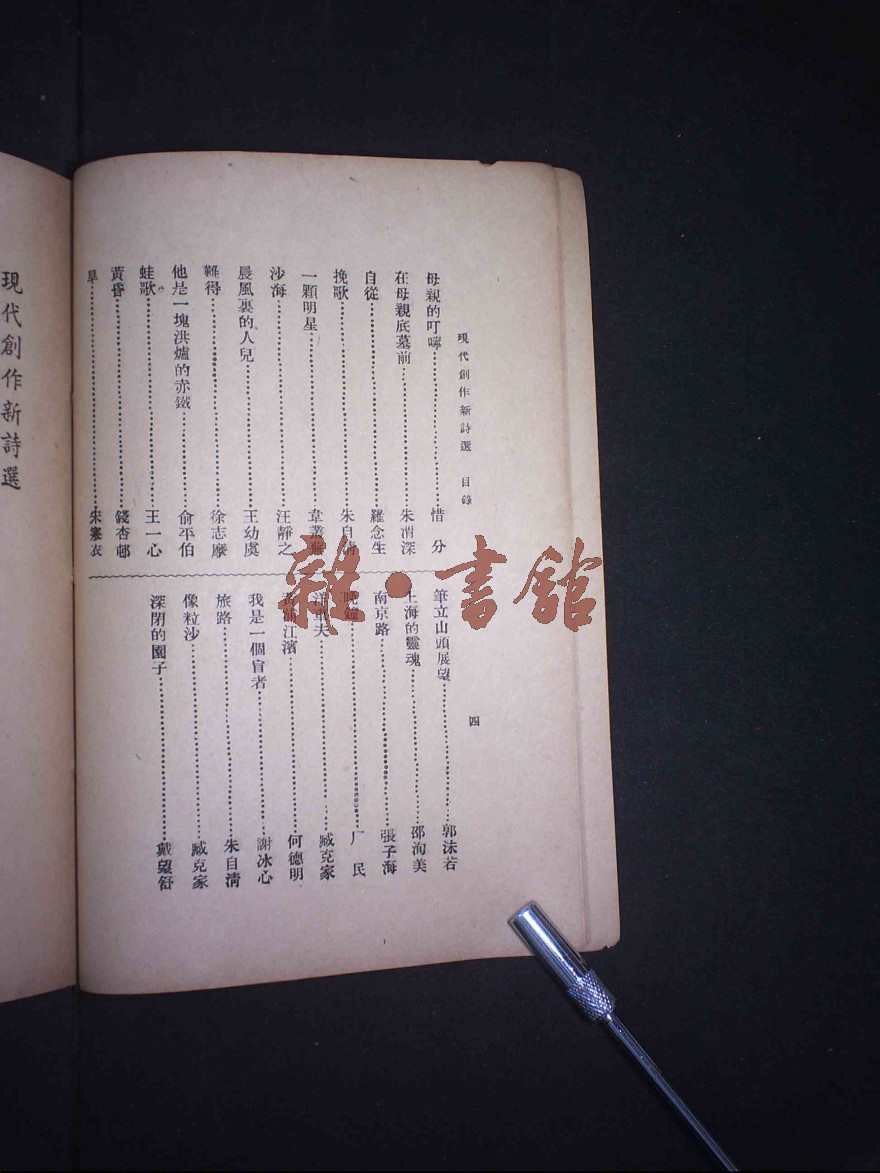 現代創作新詩選 目錄
四
母親的叮嚀 惜分
在母親底墓前 朱渭深
自從 羅念生
挽歌 朱自清
一顆明星 韋叢蕪
沙海 汪靜之
晨風裏的人兒 王幼虞
難得 徐志摩
他是一塊洪爐的赤鐵 俞平伯
蛙歌 王一心
黃昏 錢杏邨
旱 朱寒衣
筆立山頭展望 郭沫若
上海的靈魂 邵洵美
南京路 張子海
厂民
洋車夫 臧克家
黃浦江濱 何德明
我是一個盲者 謝冰心
旅路 朱自清
像粒沙 臧克家
深閉的園子 戴望舒
現代創作新詩選
雜·書館